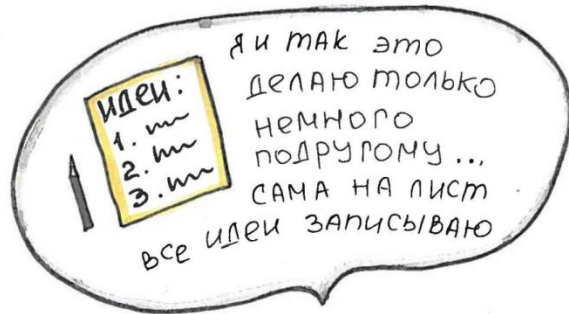 я и так это
делаю только
немного
подругому...
сама на лист
все идеи записываю
идеи:
1.
2.
3.